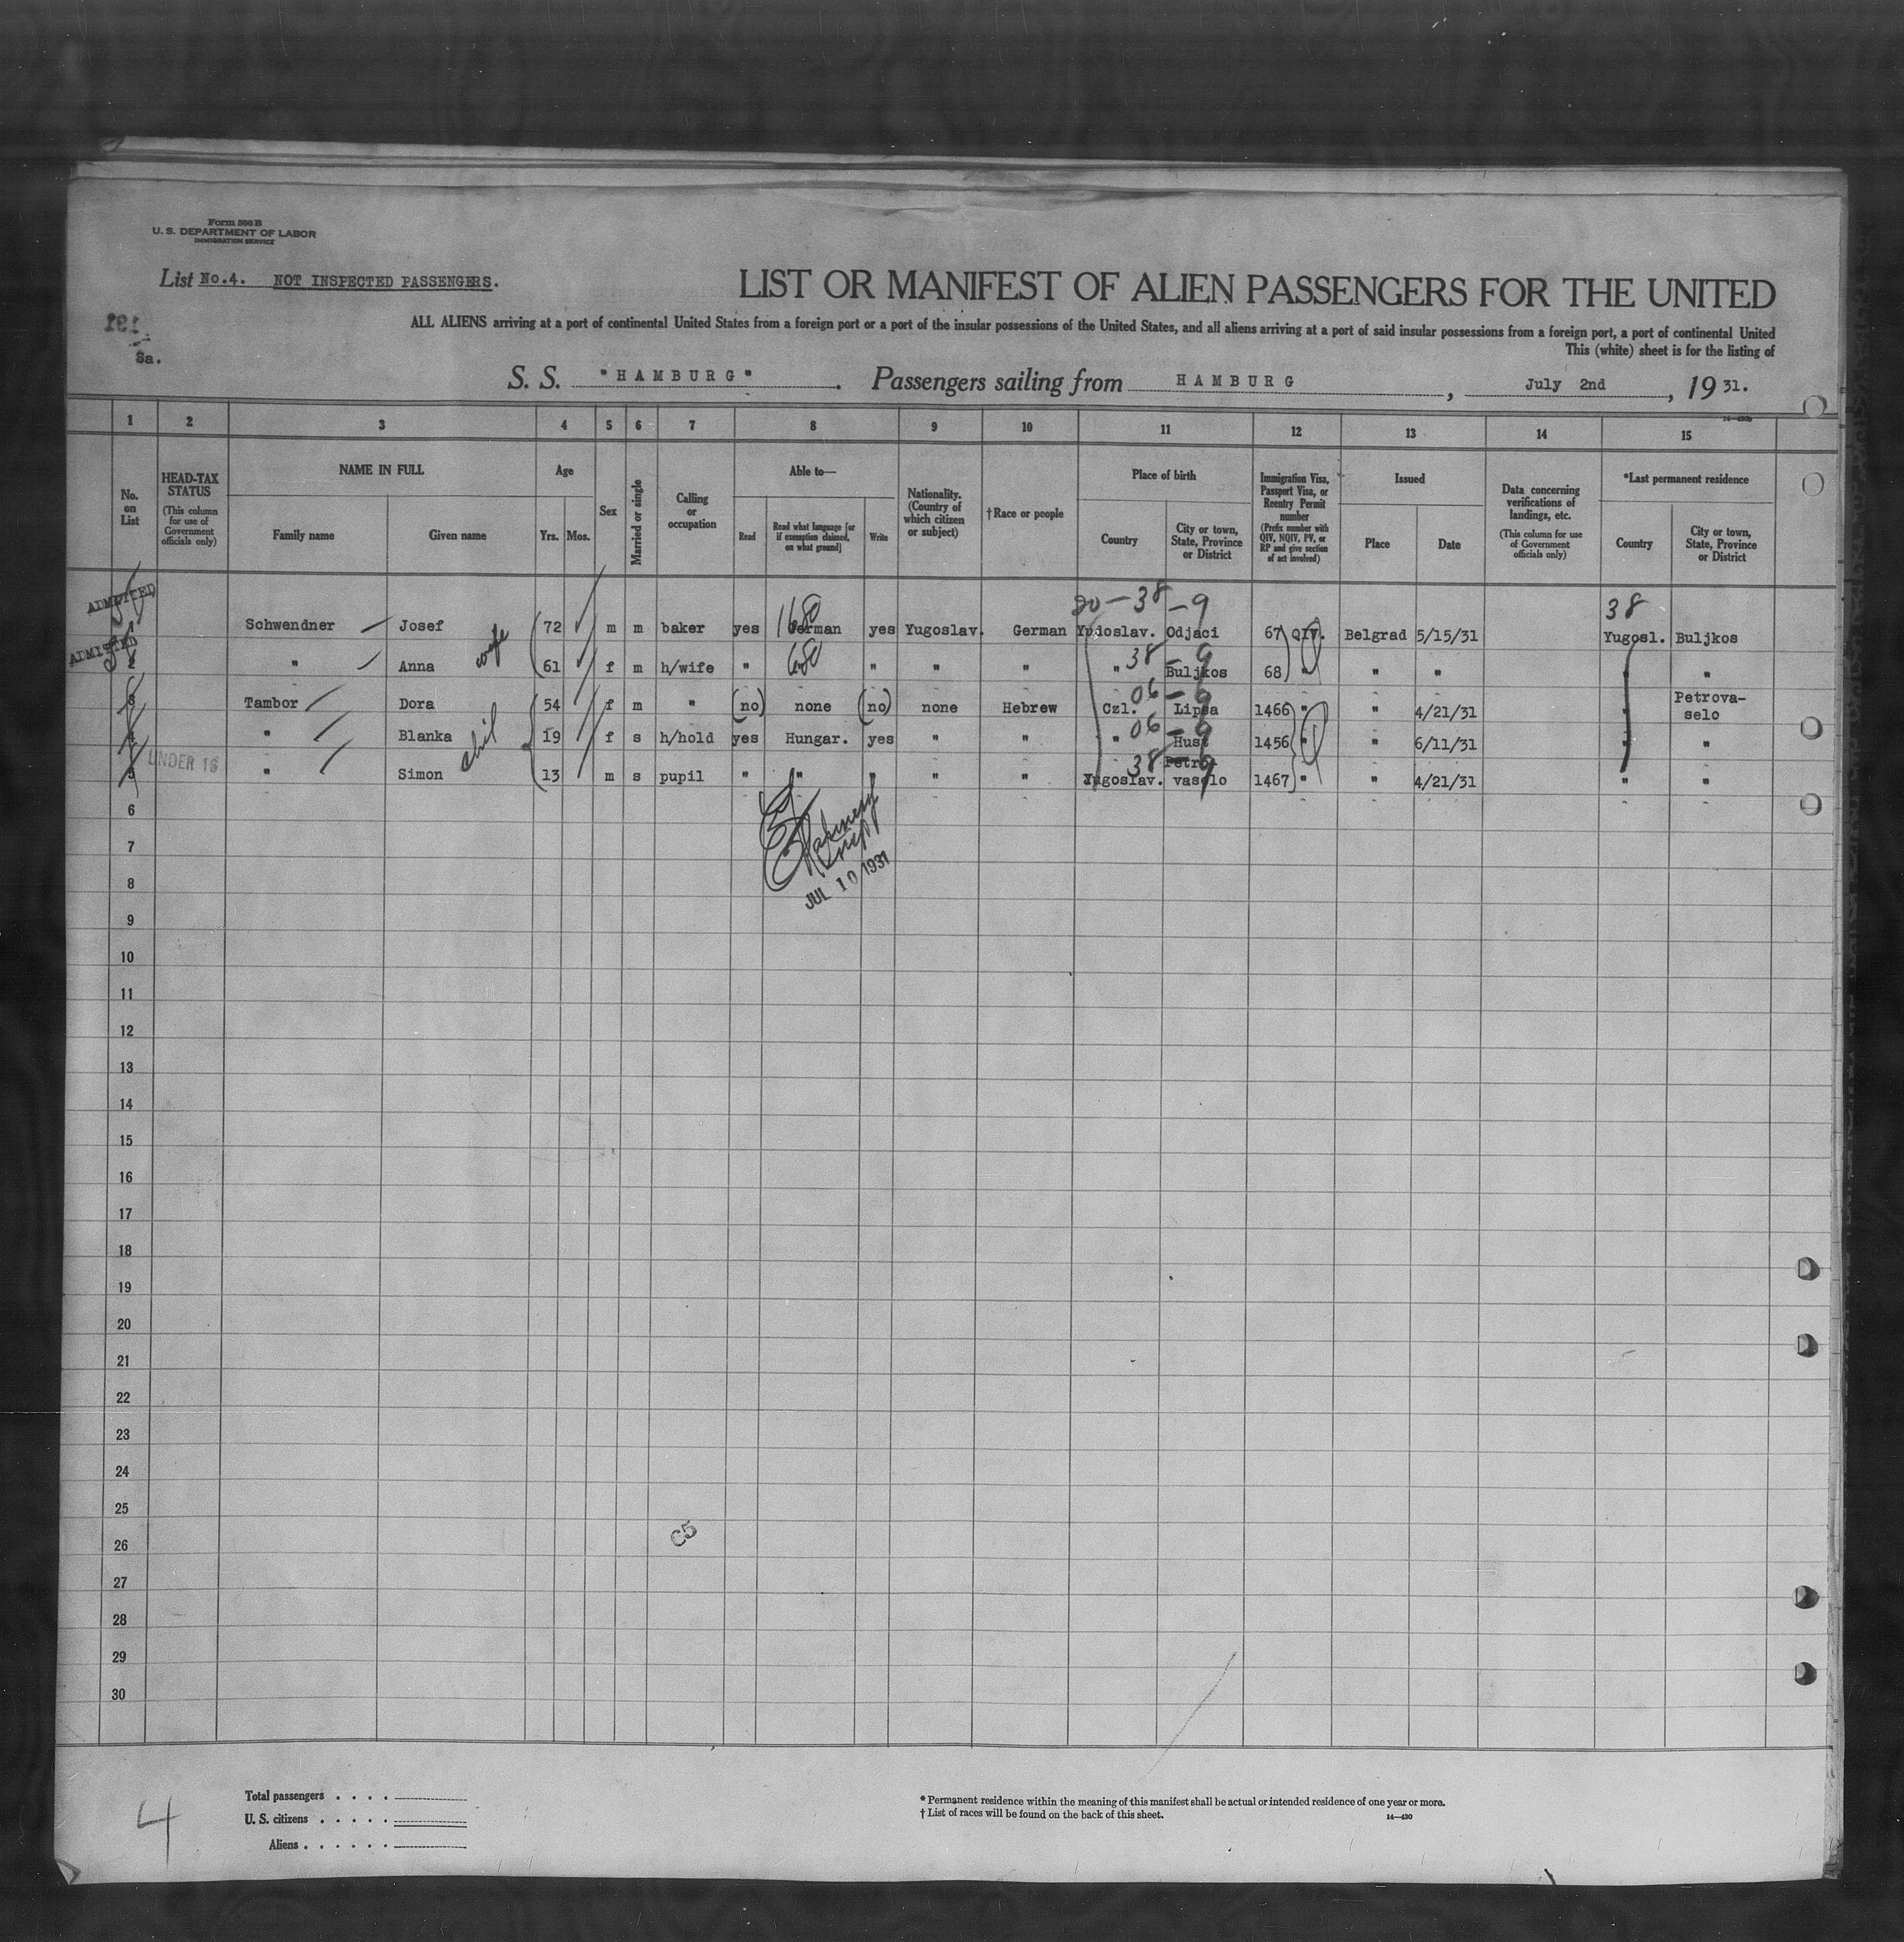 Form 500 B
U. S. DEPARTMENT OF LABOR
IMMIGRATION SERVICE
List No.4. NOT INSPECTED PASSENGERS.
LIST OR MANIFEST OF ALIEN PASSENGERS FOR THE UNITED
ALL ALIENS arriving at a port of continental United States from a foreign port or a port of the insular possessions of the United States, and all aliens arriving at a port of said insular possessions from a foreign port, a port of continental United
This (white) sheet is for the listing of
8a.
S. S. "HAMBURG". Passengers sailing from HAMBURG, July 2nd, 19 31.
1 2 3 4 5 6 7 8 9 10 11 12 13 14 15
No. on List
HEAD-TAX STATUS (This column for use of Government officials only)
NAME IN FULL
Family name Given name
Age
Yrs. Mos.
Sex
Married or single
Calling or occupation
Able to—
Read Read what language [or if exemption claimed, on what ground] Write
Nationality. (Country of which citizen or subject)
†Race or people
Place of birth
Country City or town, State, Province or District
Immigration Visa, Passport Visa, or Reentry Permit number (Prefix number with QIV, NQIV, PV, or RP and give section of act involved)
Issued
Place Date
Data concerning verifications of landings, etc. (This column for use of Government officials only)
*Last permanent residence
Country City or town, State, Province or District
20-38-9 38
ADMITTED Schwendner Josef 72 m m baker yes 168 German yes Yugoslav. German Yugoslav. Odjaci 67 QIV. Belgrad 5/15/31 Yugosl. Buljkos
ADMITTED 2 " Anna wife 61 f m h/wife " 680 " " " " 38-9 Buljkos 68 " " " " "
3 Tambor Dora 54 f m " (no) none (no) none Hebrew Czl. 06-9 Lipsa 1466 " " 4/21/31 " Petrova-selo
4 " Blanka chil 19 f s h/hold yes Hungar. yes " " " 06-9 Hust 1456 " " 6/11/31 " "
5 UNDER 16 " Simon 13 m s pupil " " " " " Yugoslav. 38-9 Petrovaselo 1467 " " 4/21/31 " "
JUL 10 1931
6
7
8
9
10
11
12
13
14
15
16
17
18
19
20
21
22
23
24
25
C5
26
27
28
29
30
4
Total passengers
U. S. citizens
Aliens
* Permanent residence within the meaning of this manifest shall be actual or intended residence of one year or more.
† List of races will be found on the back of this sheet.
14—430